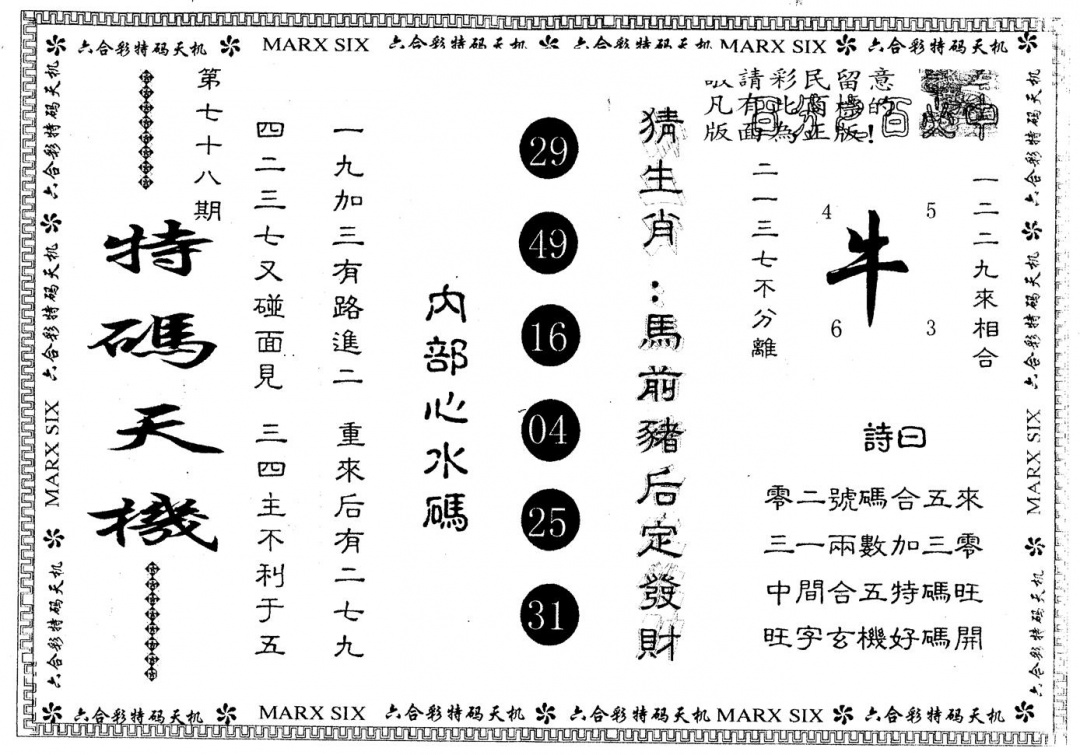 六合彩特码天机 MARX SIX 六合彩特码天机 六合彩特码天机 MARX SIX 六合彩特码天机
六合彩特码天机
六合彩特码天机
MARX SIX
六合彩特码天机
第七十八期
特碼天機
四二三七又碰面見 三四主不利于五
一九加三有路進二 重來后有二七九
內部心水碼
29
49
16
04
25
31
猜生肖：馬前豬后定發財
請彩民留意
凡有此的
版面為正版!
二一三七不分離
4
5
牛
6
3
一二二九來相合
詩曰
零二號碼合五來
三一兩數加三零
中間合五特碼旺
旺字玄機好碼開
六合彩特码天机
六合彩特码天机
MARX SIX
六合彩特码天机
六合彩特码天机 MARX SIX 六合彩特码天机 六合彩特码天机 MARX SIX 六合彩特码天机